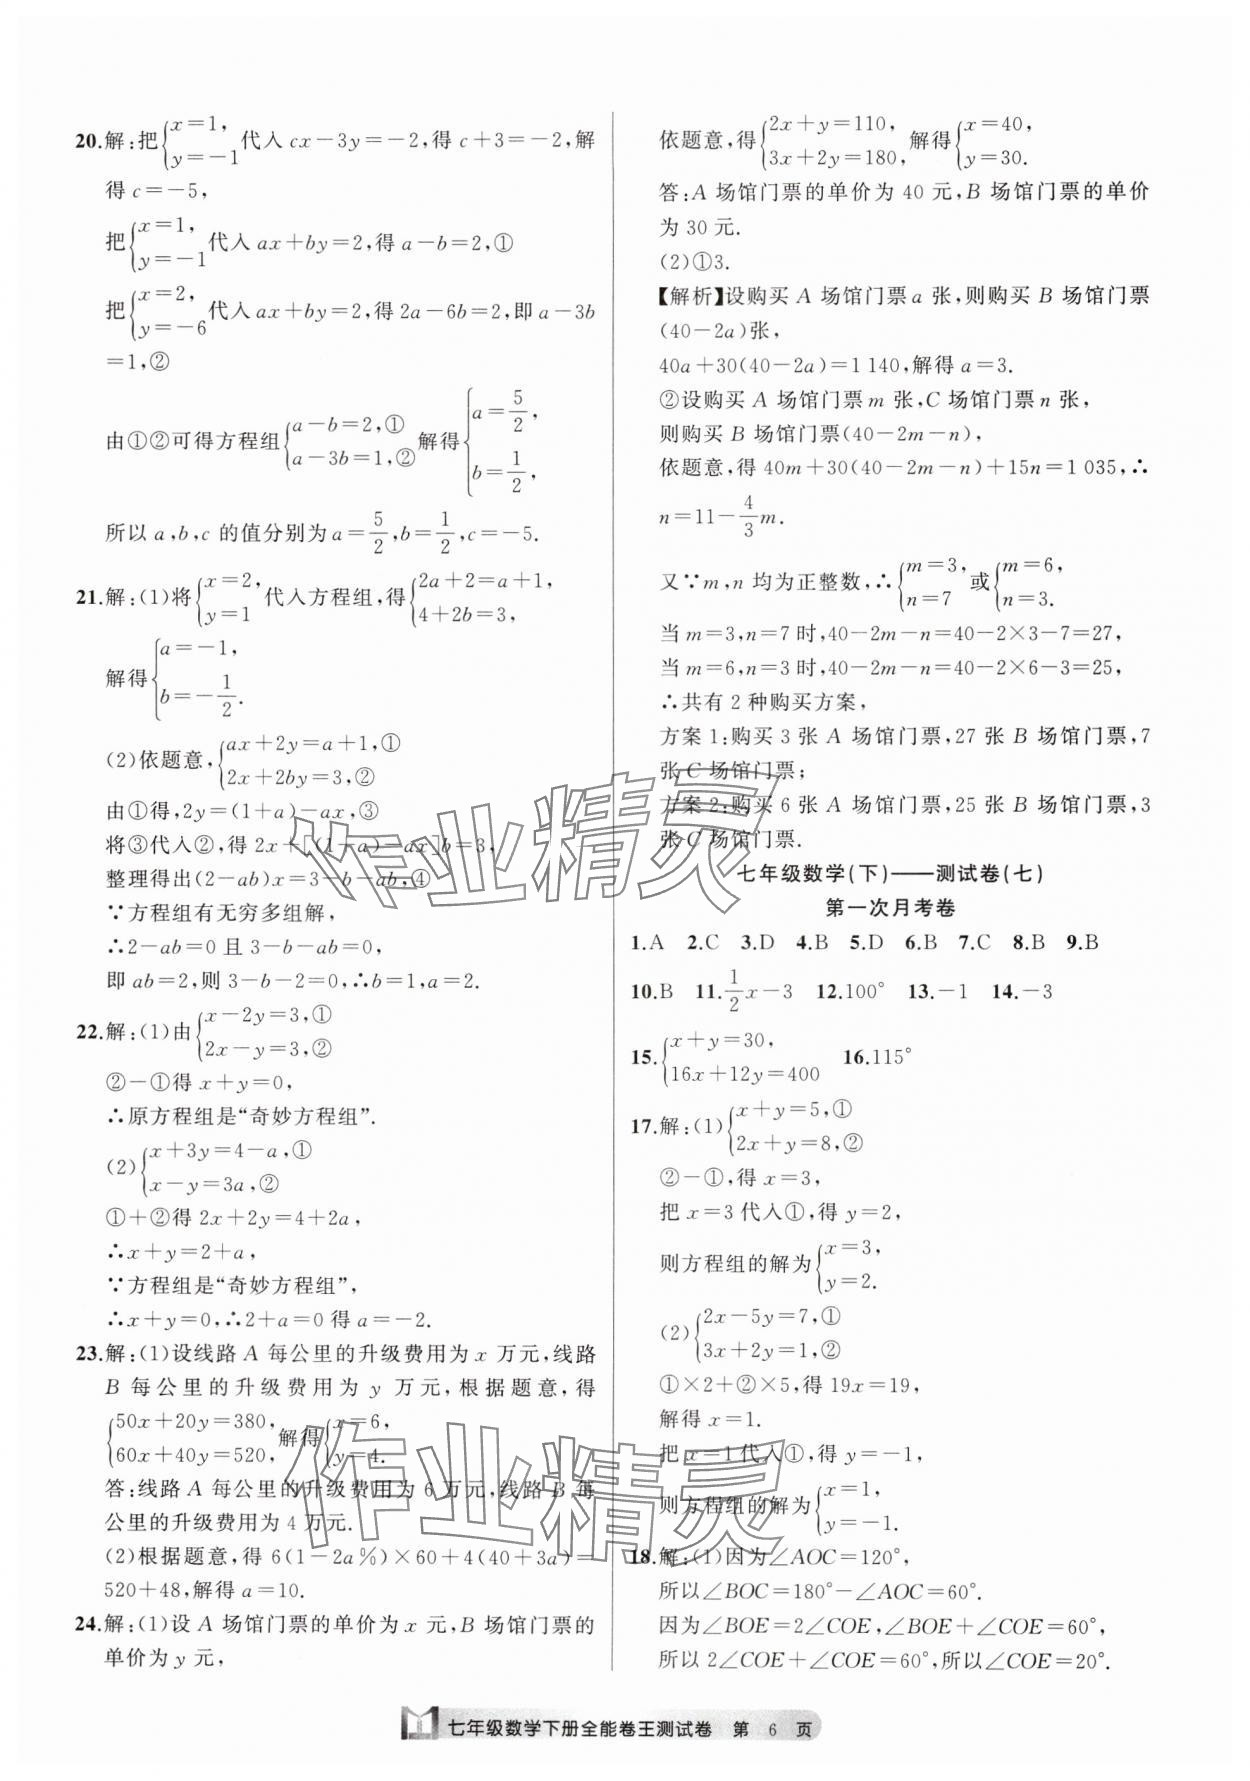 20.解:把{x=1, y=-1 代入 cx-3y=-2,得 c+3=-2,解
得 c=-5,
把{x=1, y=-1 代入 ax+by=2,得 a-b=2,①
把{x=2, y=-6 代入 ax+by=2,得 2a-6b=2,即 a-3b
=1,②
由①②可得方程组{a-b=2,① a-3b=1,② 解得{a=5/2, b=1/2,
所以 a,b,c 的值分别为 a=5/2,b=1/2,c=-5.
21.解:(1)将{x=2, y=1 代入方程组,得{2a+2=a+1, 4+2b=3,
解得{a=-1, b=-1/2.
(2)依题意,{ax+2y=a+1,① 2x+2by=3,②
由①得,2y=(1+a)-ax,③
将③代入②,得 2x+[(1+a)-ax]b=3,
整理得出(2-ab)x=3-b-ab,④
∵方程组有无穷多组解,
∴2-ab=0 且 3-b-ab=0,
即 ab=2,则 3-b-2=0,∴b=1,a=2.
22.解:(1)由{x-2y=3,① 2x-y=3,②
②-①得 x+y=0,
∴原方程组是“奇妙方程组”.
(2){x+3y=4-a,① x-y=3a,②
①+②得 2x+2y=4+2a,
∴x+y=2+a,
∵方程组是“奇妙方程组”,
∴x+y=0,∴2+a=0 得 a=-2.
23.解:(1)设线路 A 每公里的升级费用为 x 万元,线路
B 每公里的升级费用为 y 万元,根据题意,得
{50x+20y=380, 60x+40y=520, 解得{x=6, y=4.
答:线路 A 每公里的升级费用为 6 万元,线路 B 每
公里的升级费用为 4 万元.
(2)根据题意,得 6(1-2a%)×60+4(40+3a)=
520+48,解得 a=10.
24.解:(1)设 A 场馆门票的单价为 x 元,B 场馆门票的
单价为 y 元,
依题意,得{2x+y=110, 3x+2y=180, 解得{x=40, y=30.
答:A 场馆门票的单价为 40 元,B 场馆门票的单价
为 30 元.
(2)①3.
【解析】设购买 A 场馆门票 a 张,则购买 B 场馆门票
(40-2a)张,
40a+30(40-2a)=1 140,解得 a=3.
②设购买 A 场馆门票 m 张,C 场馆门票 n 张,
则购买 B 场馆门票(40-2m-n),
依题意,得 40m+30(40-2m-n)+15n=1 035,∴
n=11-4/3m.
又∵m,n 均为正整数,∴{m=3, n=7 或{m=6, n=3.
当 m=3,n=7 时,40-2m-n=40-2×3-7=27,
当 m=6,n=3 时,40-2m-n=40-2×6-3=25,
∴共有 2 种购买方案,
方案 1:购买 3 张 A 场馆门票,27 张 B 场馆门票,7
张 C 场馆门票;
方案 2:购买 6 张 A 场馆门票,25 张 B 场馆门票,3
张 C 场馆门票.
七年级数学(下)——测试卷(七)
第一次月考卷
1.A 2.C 3.D 4.B 5.D 6.B 7.C 8.B 9.B
10.B 11.1/2x-3 12.100° 13.-1 14.-3
15.{x+y=30, 16x+12y=400 16.115°
17.解:(1){x+y=5,① 2x+y=8,②
②-①,得 x=3,
把 x=3 代入①,得 y=2,
则方程组的解为{x=3, y=2.
(2){2x-5y=7,① 3x+2y=1,②
①×2+②×5,得 19x=19,
解得 x=1.
把 x=1 代入①,得 y=-1,
则方程组的解为{x=1, y=-1.
18.解:(1)因为∠AOC=120°,
所以∠BOC=180°-∠AOC=60°.
因为∠BOE=2∠COE,∠BOE+∠COE=60°,
所以 2∠COE+∠COE=60°,所以∠COE=20°.
七年级数学下册全能卷王测试卷 第 6 页
作业精灵
作业精灵